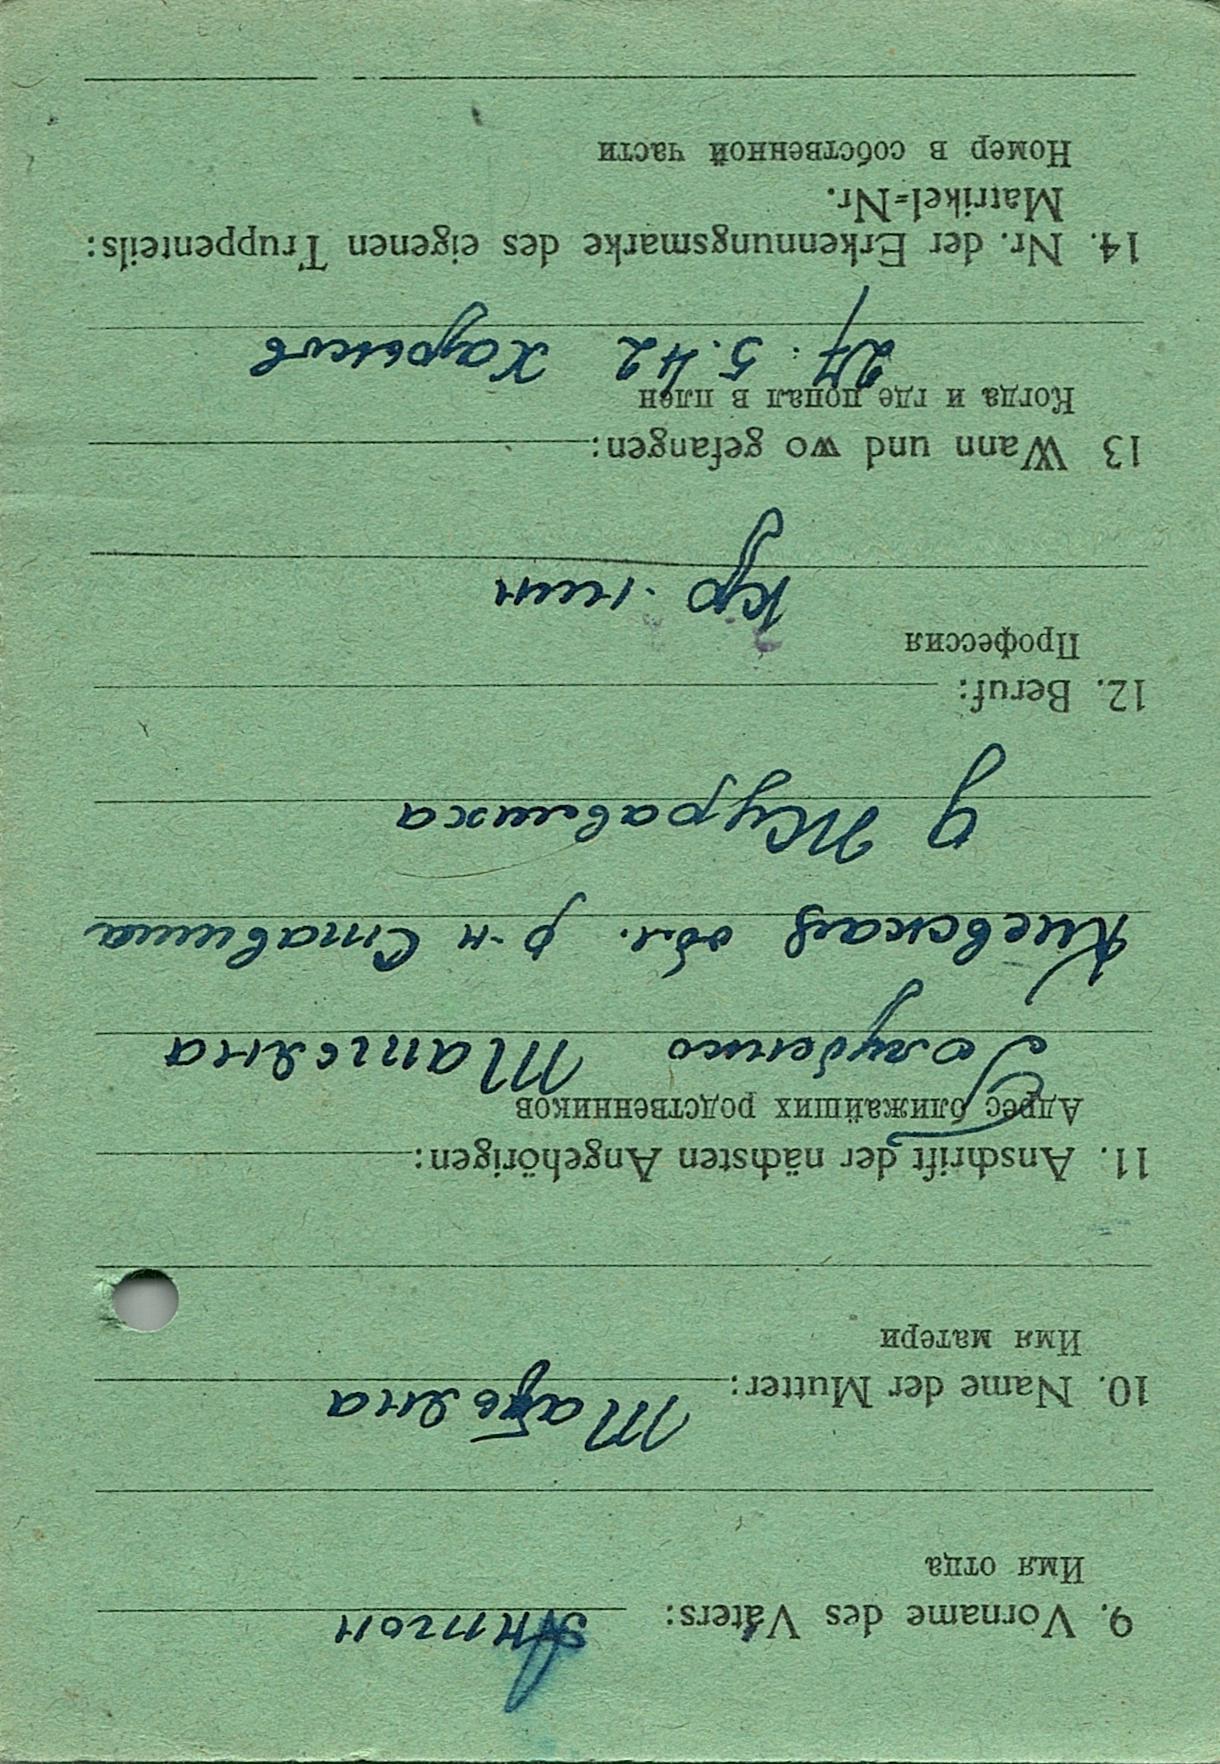 9. Vorname des Vaters: Антон
Имя отца
10. Name der Mutter: Татьяна
Имя матери
11. Anschrift der nächsten Angehörigen:
Адрес ближайших родственников
Голубенко Татьяна
Киевская обл. р-н Ставища
д Журавлиха
12. Beruf:
Профессия
кр-нин
13 Wann und wo gefangen:
Когда и где попал в плен
27. 5. 42 Харьков
14. Nr. der Erkennungsmarke des eigenen Truppenteils:
Matrikel-Nr.
Номер в собственной части